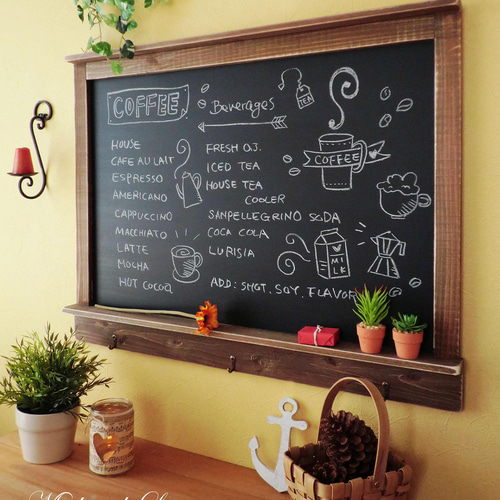 COFFEE
Beverages
TEA
HOUSE
CAFE AU LAIT
ESPRESSO
AMERICANO
CAPPUCCINO
MACCHIATO
LATTE
MOCHA
HOT COCOA
FRESH O.J.
ICED TEA
HOUSE TEA
COOLER
SANPELLEGRINO SODA
COCA COLA
LURISIA
ADD: SHOT, SOY, FLAVOR
COFFEE
MILK